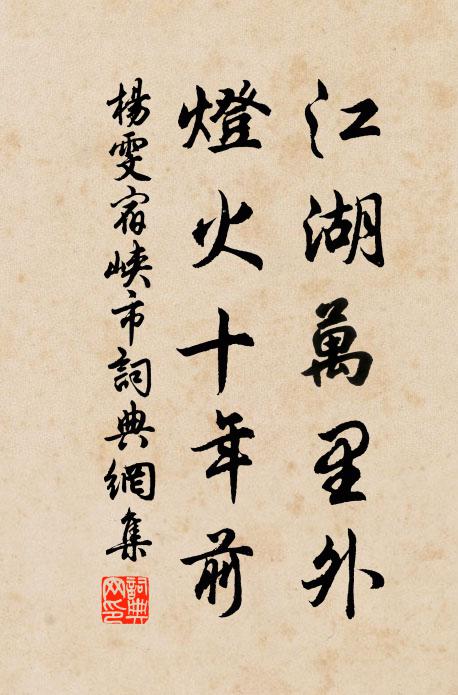 江湖萬里外
燈火十年前
楊雯宿峽市詞典網集
詞典网印